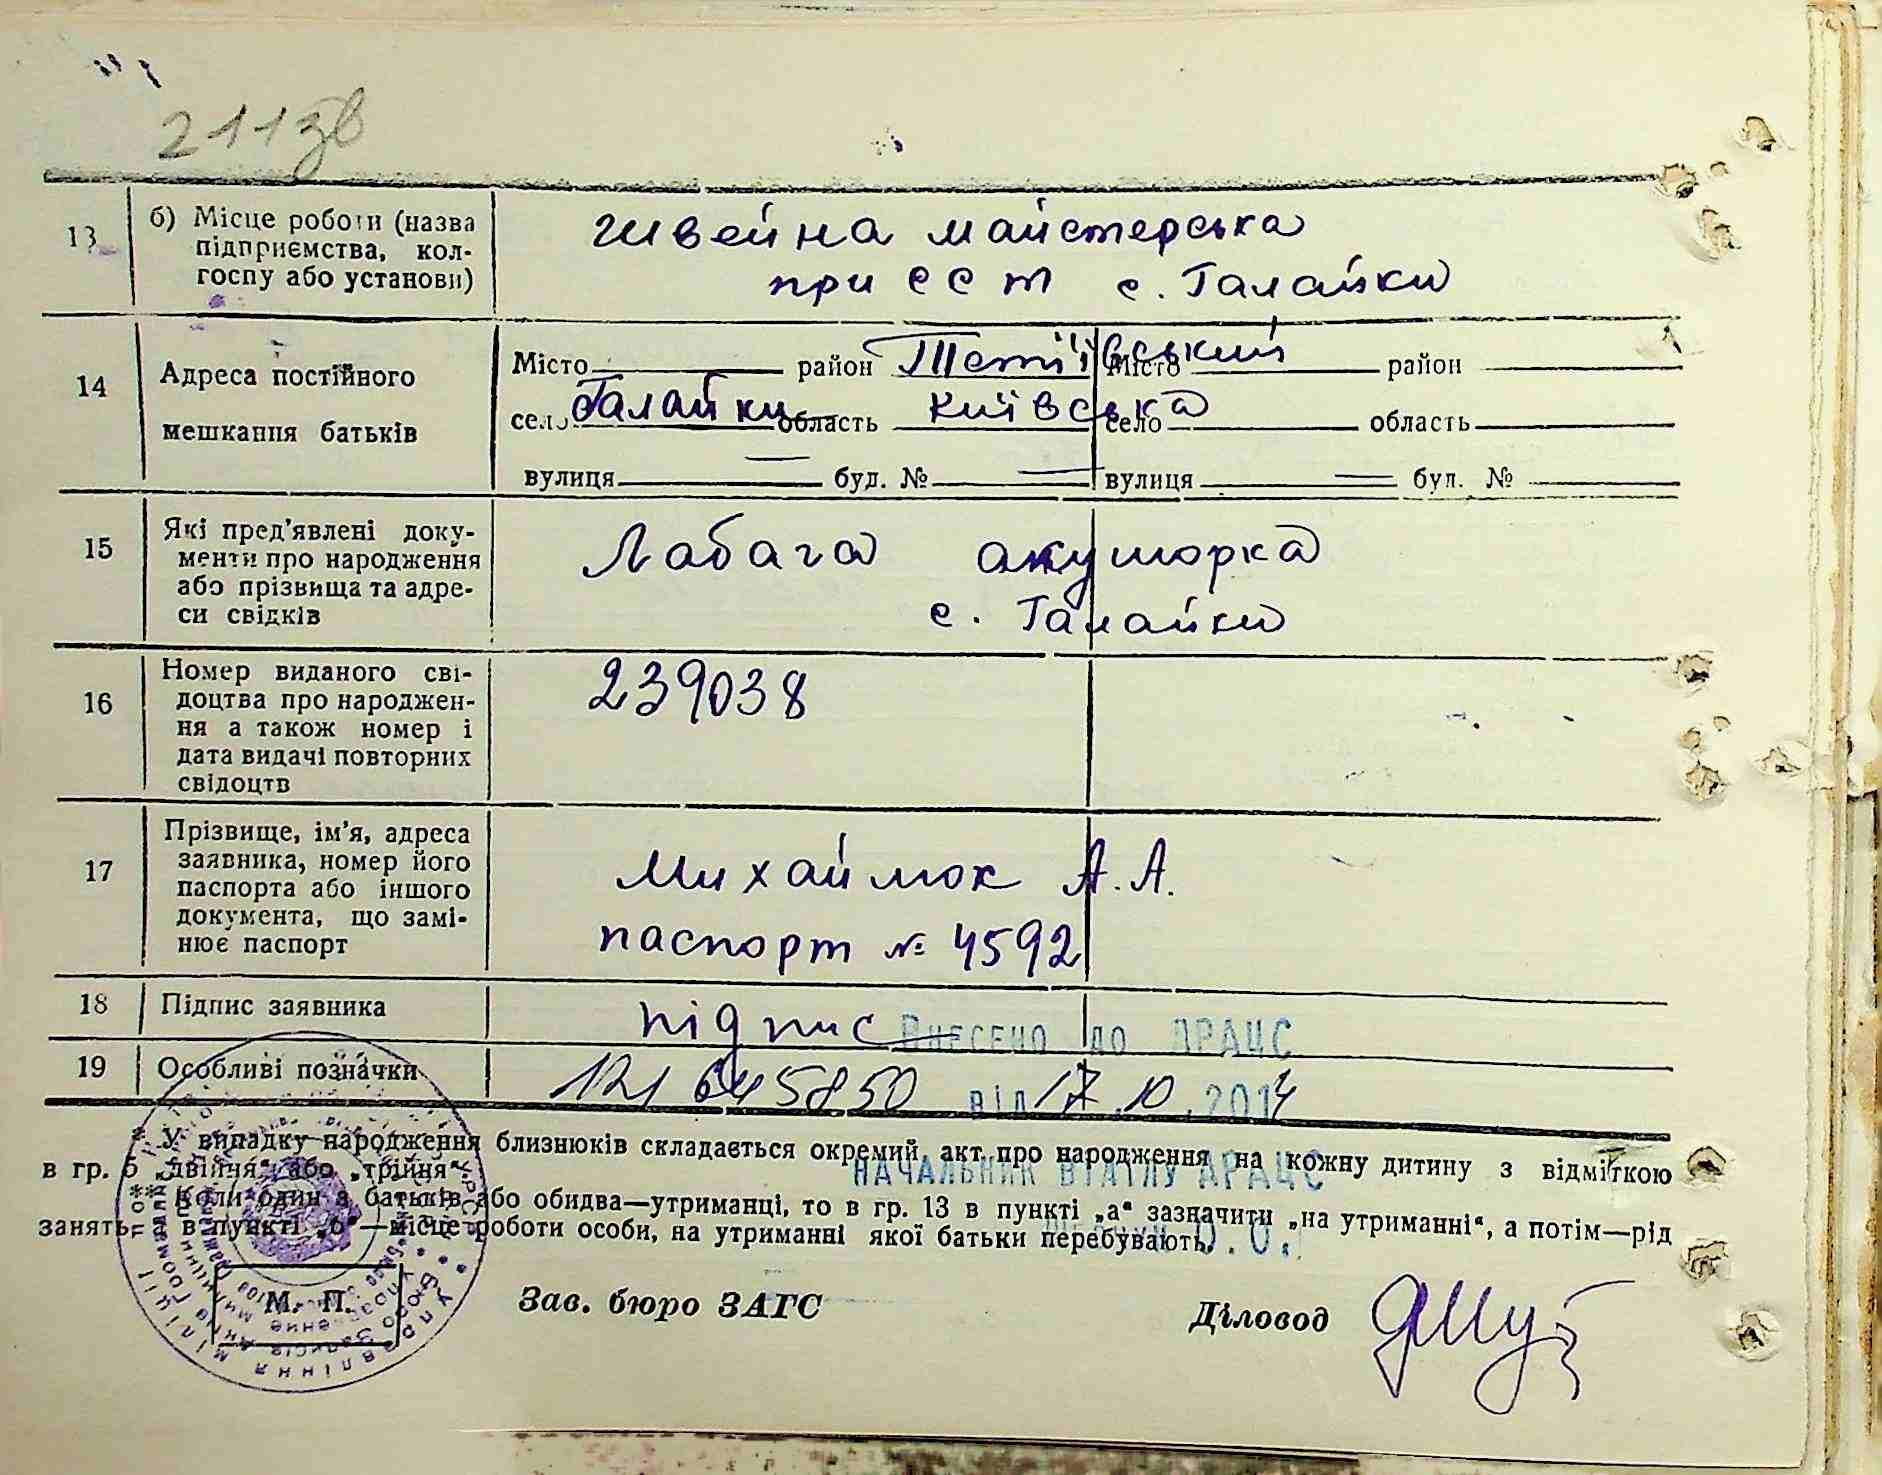 211зв
13
б) Місце роботи (назва
підприємства, кол-
госпу або установи)
Швейна майстерська
при ССТ с. Галайки
14
Адреса постійного
мешкання батьків
Місто район Тетіївський Місто район
село Галайки область Київська село область
вулиця буд. № вулиця буд. №
15
Які пред'явлені доку-
менти про народження
або прізвища та адре-
си свідків
Лабага акушорка
с. Галайки
16
Номер виданого сві-
доцтва про народжен-
ня а також номер і
дата видачі повторних
свідоцтв
239038
17
Прізвище, ім'я, адреса
заявника, номер його
паспорта або іншого
документа, що замі-
нює паспорт
Михайлюк А.А.
паспорт № 4592
18
Підпис заявника
підпис
Внесено до ДРАЦС
19
Особливі позначки
121645850 від 17.10.2014
У випадку народження близнюків складається окремий акт про народження на кожну дитину з відміткою
в гр. 5 „двійня“ або „трійня“
НАЧАЛЬНИК ВІДДІЛУ ДРАЦС
Коли один з батьків або обидва—утриманці, то в гр. 13 в пункті „а“ зазначити „на утриманні“, а потім—рід
занять, а в пункті „б“—місце роботи особи, на утриманні якої батьки перебувають.
М. П.
Зав. бюро ЗАГС
Діловод